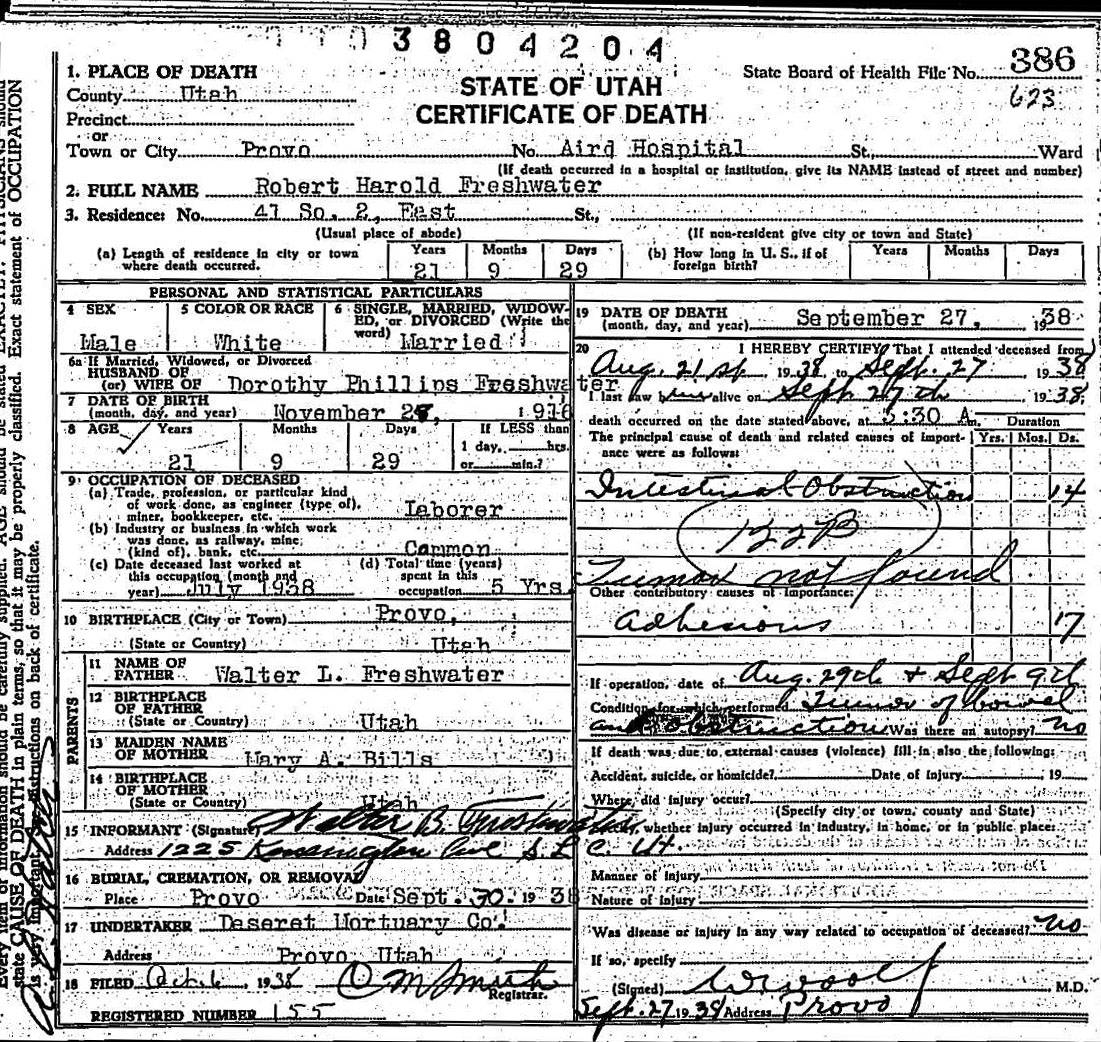 3804204
1. PLACE OF DEATH
County Utah
Precinct
or
Town or City Provo No. Aird Hospital St., Ward
STATE OF UTAH
CERTIFICATE OF DEATH
State Board of Health File No. 386
623
(If death occurred in a hospital or institution, give its NAME instead of street and number)
2. FULL NAME Robert Harold Freshwater
3. Residence: No. 41 So. 2, East St.,
(Usual place of abode) (If non-resident give city or town and State)
(a) Length of residence in city or town where death occurred. Years 21 Months 9 Days 29
(b) How long in U. S., if of foreign birth? Years Months Days
PERSONAL AND STATISTICAL PARTICULARS
4 SEX Male
5 COLOR OR RACE White
6 SINGLE, MARRIED, WIDOWED, or DIVORCED (Write the word) Married
6a If Married, Widowed, or Divorced
HUSBAND OF
(or) WIFE OF Dorothy Phillips Freshwater
7 DATE OF BIRTH
(month, day, and year) November 28, 1916
8 AGE Years 21 Months 9 Days 29 If LESS than 1 day, hrs. or min.?
9 OCCUPATION OF DECEASED
(a) Trade, profession, or particular kind
of work done, as engineer (type of),
miner, bookkeeper, etc. Laborer
(b) Industry or business in which work
was done, as railway, mine,
(kind of), bank, etc. Common
(c) Date deceased last worked at
this occupation (month and
year) July 1938
(d) Total time (years)
spent in this
occupation 5 Yrs.
10 BIRTHPLACE (City or Town) Provo,
(State or Country) Utah
PARENTS
11 NAME OF
FATHER Walter L. Freshwater
12 BIRTHPLACE
OF FATHER
(State or Country) Utah
13 MAIDEN NAME
OF MOTHER Mary A. Bills
14 BIRTHPLACE
OF MOTHER
(State or Country) Utah
15 INFORMANT (Signature) Walter B. Freshwater
Address 1225 Kensington Ave S.L.C. Ut.
16 BURIAL, CREMATION, OR REMOVAL
Place Provo Date Sept. 30, 1938
17 UNDERTAKER Deseret Mortuary Co.
Address Provo, Utah
18 FILED Oct. 6, 1938 O M Smith
Registrar.
REGISTERED NUMBER 155
19 DATE OF DEATH
(month, day, and year) September 27, 1938
20 I HEREBY CERTIFY, That I attended deceased from
Aug. 21st, 1938 to Sept. 27 1938
I last saw him alive on Sept 27th, 1938,
death occurred on the date stated above, at 5:30 A.m. Duration
The principal cause of death and related causes of importance were as follows: Yrs. Mos. Ds.
Intestinal Obstruction 14
122B
Tumor not found
Other contributory causes of importance:
Adhesions 17
If operation, date of Aug. 29th + Sept 9th
Condition for which performed Tumor of bowel
and obstruction Was there an autopsy? no
If death was due to external causes (violence) fill in also the following:
Accident, suicide, or homicide? Date of injury 19
Where did injury occur?
(Specify city or town, county and State)
whether injury occurred in industry, in home, or in public place:
Manner of injury
Nature of injury
Was disease or injury in any way related to occupation of deceased? no
If so, specify
(Signed) W Woolf M.D.
Sept. 27 1938 Address Provo
state CAUSE OF DEATH in plain terms, so that it may be properly classified. Exact statement of OCCUPATION